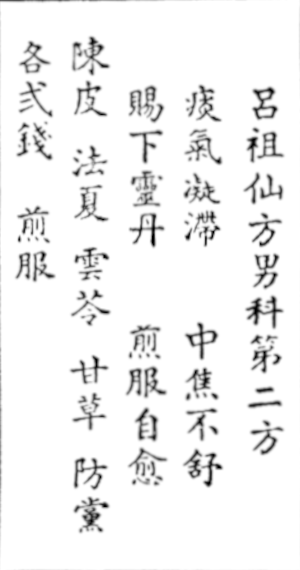 呂祖仙方男科第二方
痰氣凝滯　中焦不舒
賜下靈丹　煎服自愈
陳皮　法夏　雲苓　甘草　防黨
各弍錢　煎服